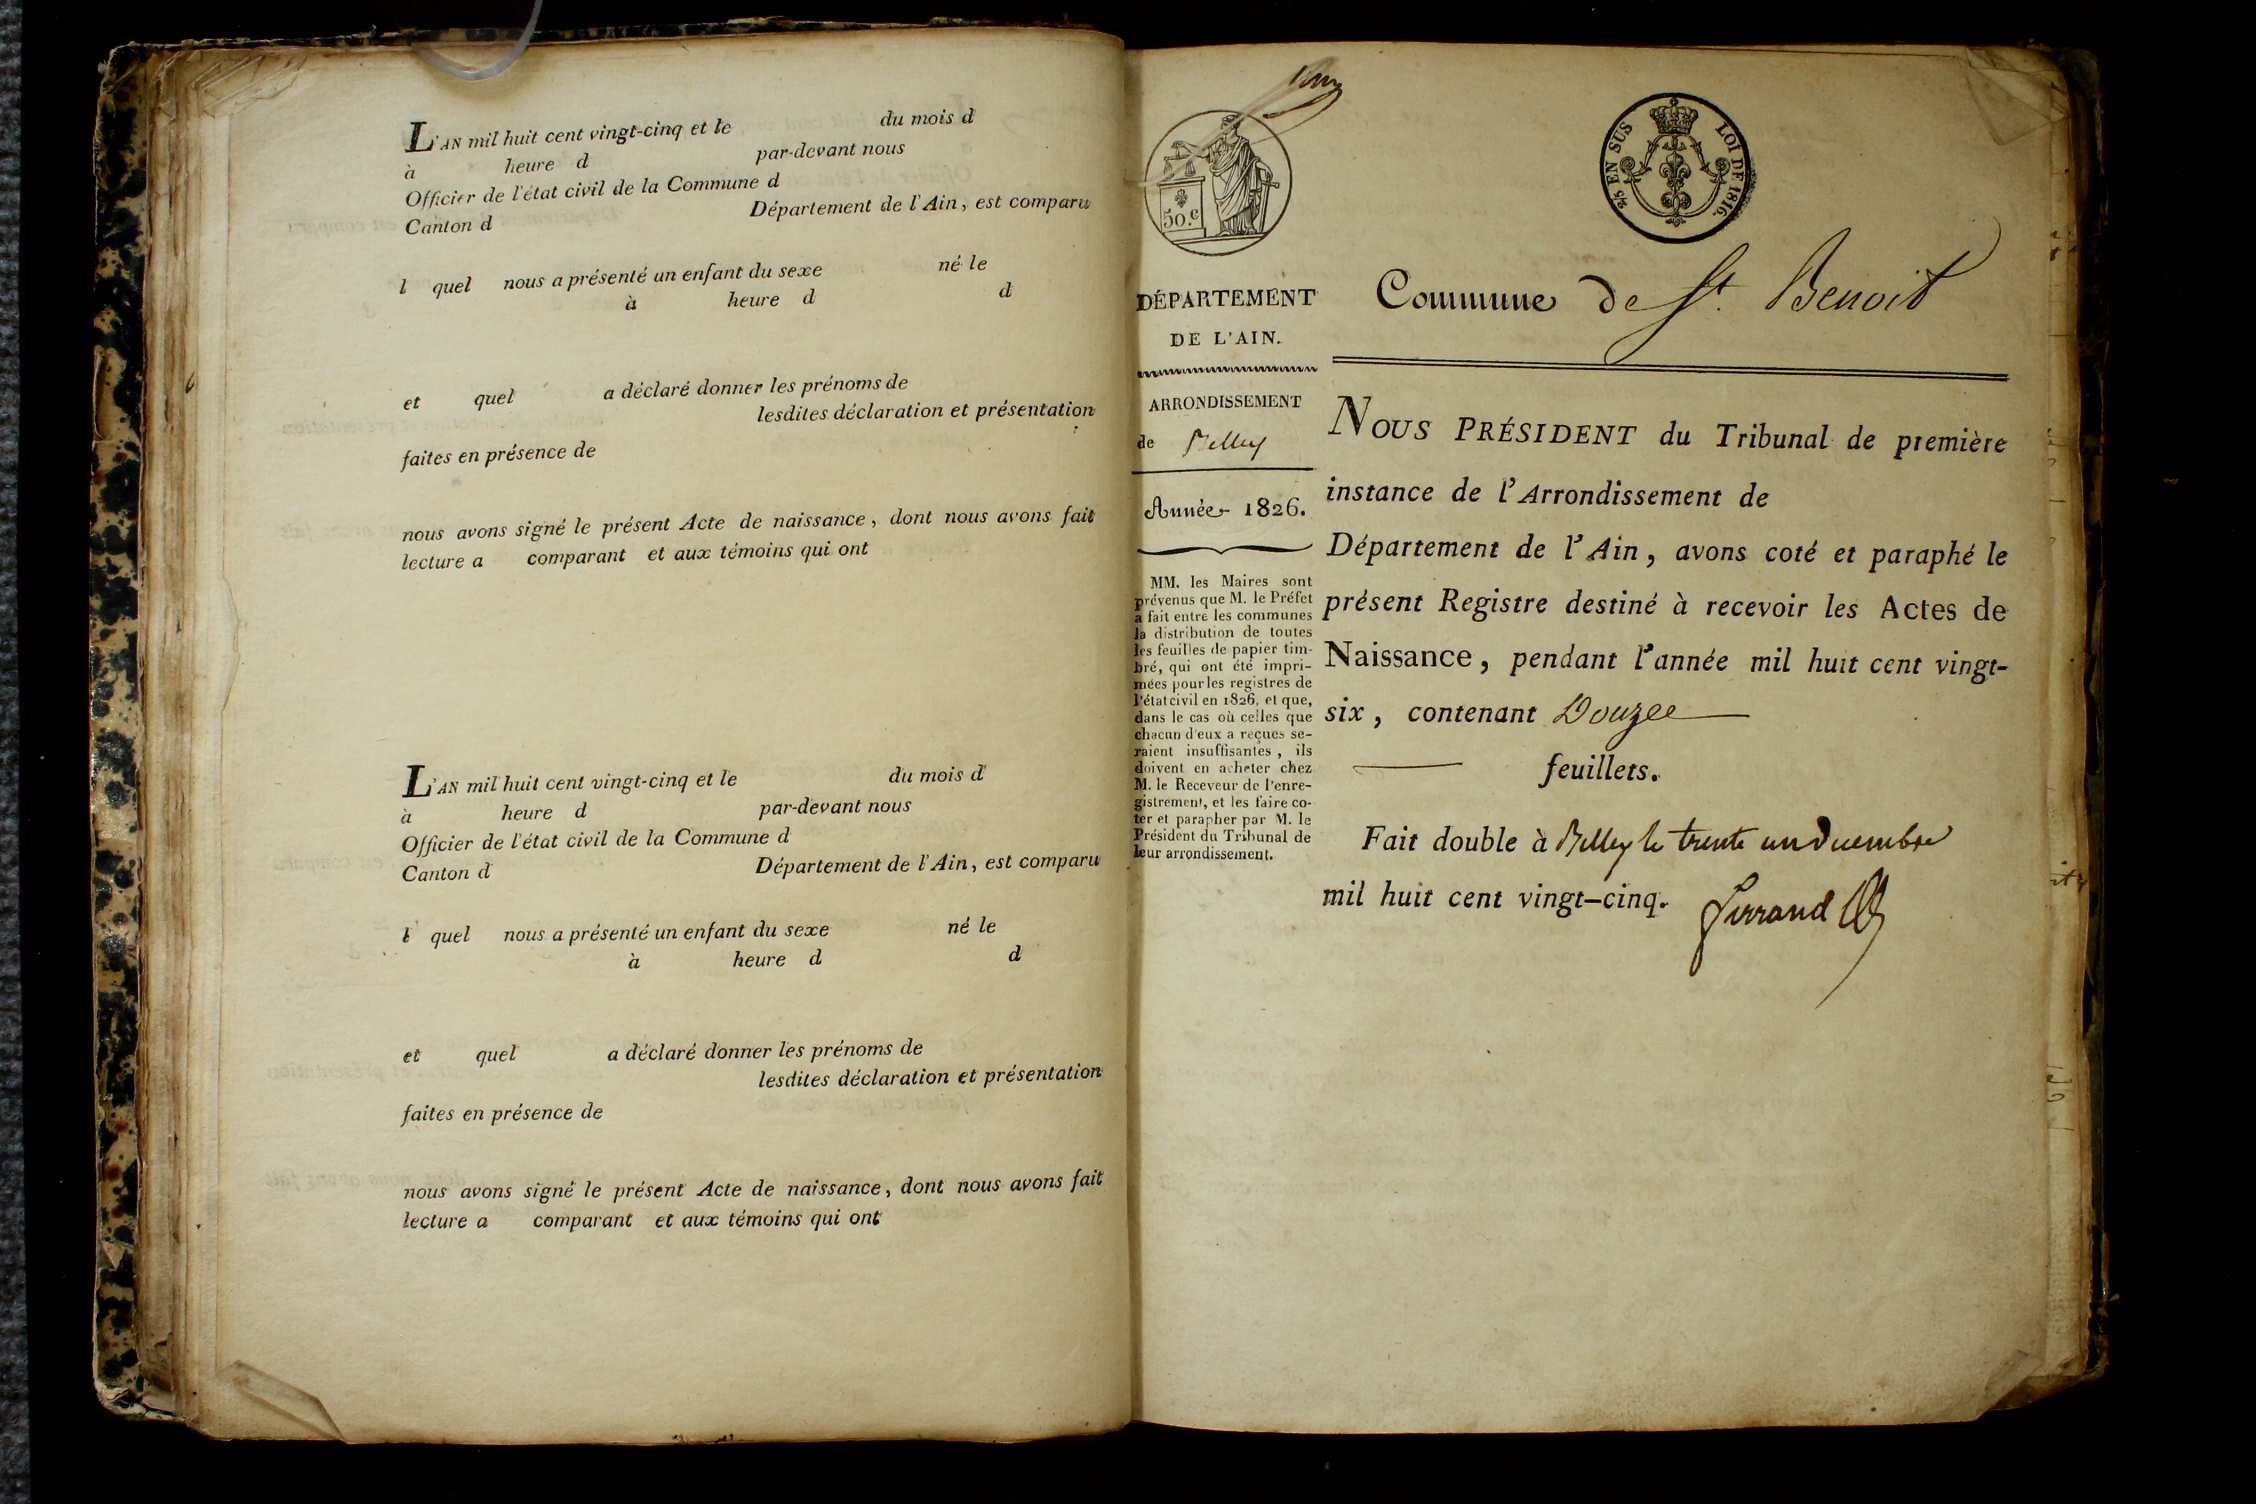 L'AN mil huit cent vingt-cinq et le du mois d
à heure d par-devant nous
Officier de l'état civil de la Commune d
Canton d Département de l'Ain, est comparu
l quel nous a présenté un enfant du sexe né le
à heure d d
et quel a déclaré donner les prénoms de
lesdites déclaration et présentation
faites en présence de
nous avons signé le présent Acte de naissance, dont nous avons fait
lecture a comparant et aux témoins qui ont
L'AN mil huit cent vingt-cinq et le du mois d
à heure d par-devant nous
Officier de l'état civil de la Commune d
Canton d Département de l'Ain, est comparu
l quel nous a présenté un enfant du sexe né le
à heure d d
et quel a déclaré donner les prénoms de
lesdites déclaration et présentation
faites en présence de
nous avons signé le présent Acte de naissance, dont nous avons fait
lecture a comparant et aux témoins qui ont
50.c
DÉPARTEMENT
DE L'AIN.
ARRONDISSEMENT
de Belley
Année 1826.
MM. les Maires sont
prévenus que M. le Préfet
a fait entre les communes
la distribution de toutes
les feuilles de papier tim-
bré, qui ont été impri-
mées pour les registres de
l'état civil en 1826, et que,
dans le cas où celles que
chacun d'eux a reçues se-
raient insuffisantes, ils
doivent en acheter chez
M. le Receveur de l'enre-
gistrement, et les faire co-
ter et parapher par M. le
Président du Tribunal de
leur arrondissement.
EN SUS LOI DE 1816.
Commune de St. Benoit
NOUS PRÉSIDENT du Tribunal de première
instance de l'Arrondissement de
Département de l'Ain, avons coté et paraphé le
présent Registre destiné à recevoir les Actes de
Naissance, pendant l'année mil huit cent vingt-
six, contenant Douze
feuillets.
Fait double à Belley le trente un Decembre
mil huit cent vingt-cinq.